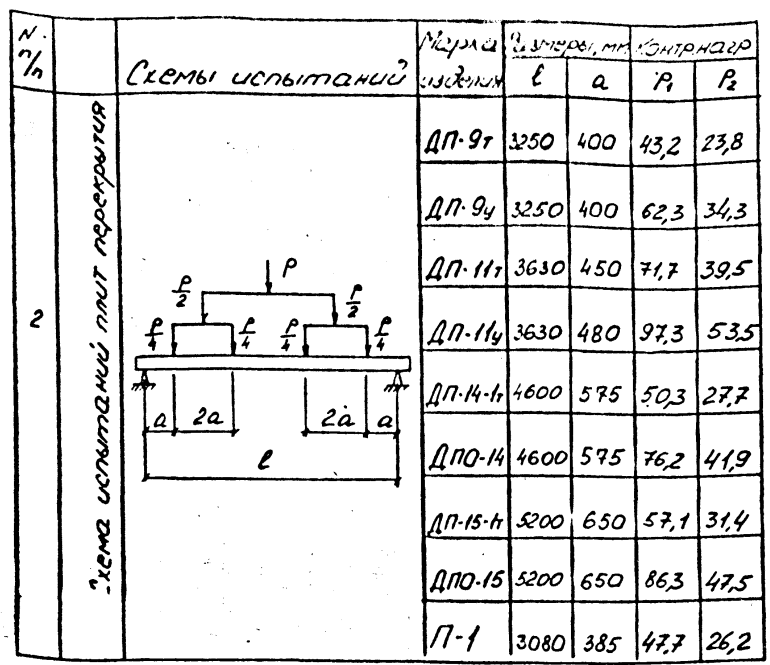 N·
п/п
Схемы испытаний
Марка
изделия
Размеры, мм
Контр. нагр
l
a
P₁
P₂
2
Схема испытаний плит перекрытия
P
P/2
P/2
P/4
P/4
P/4
P/4
a
2a
2a
a
l
ДП-9т 3250 400 43,2 23,8
ДП-9у 3250 400 62,3 34,3
ДП-11т 3630 450 71,7 39,5
ДП-11у 3630 480 97,3 53,5
ДП-14-1т 4600 575 50,3 27,7
ДПО-14 4600 575 76,2 41,9
ДП-15-1т 5200 650 57,1 31,4
ДПО-15 5200 650 86,3 47,5
П-1 3080 385 47,7 26,2